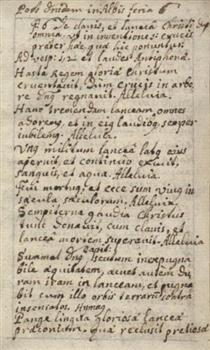 Post Dnicam in Albis feria 6
F. 6 De clavis, et lancea Christi dup
omnia, ut in inventione crucis
præter hæc quæ hic ponuntur.
Ad vesp. et laudes Antiphenæ.
Hasta Regem gloriæ Christum
cruentavit, Dum crucis in arbo
re Dns regnavit. Alleluia.
Hanc tremendam lanceam, omnes
adorent, et in ejus laudes semper
jubilent, Alleluia.
Vns militum lancea latus ejus
aperuit, et continuo exivit,
sanguis, et aqua. Alleluia.
Fui mortuus, et ecce sum vivus in
sæcula sæculorum. Alleluia.
Sempiterna gaudia Christus
tunc donavit, cum clavis, et
lancea mortem superavit. Alleluia
Capit.
Sumet Dns scutum inexpugna
bile æquitatem, acuet autem du
ram iram in lanceam, et pugna
bit cum illo orbis terrarum contra
insensatos. Hymnus
Pange lingua gloriosæ lanceæ
præconium, quæ reclusit pretiosæ